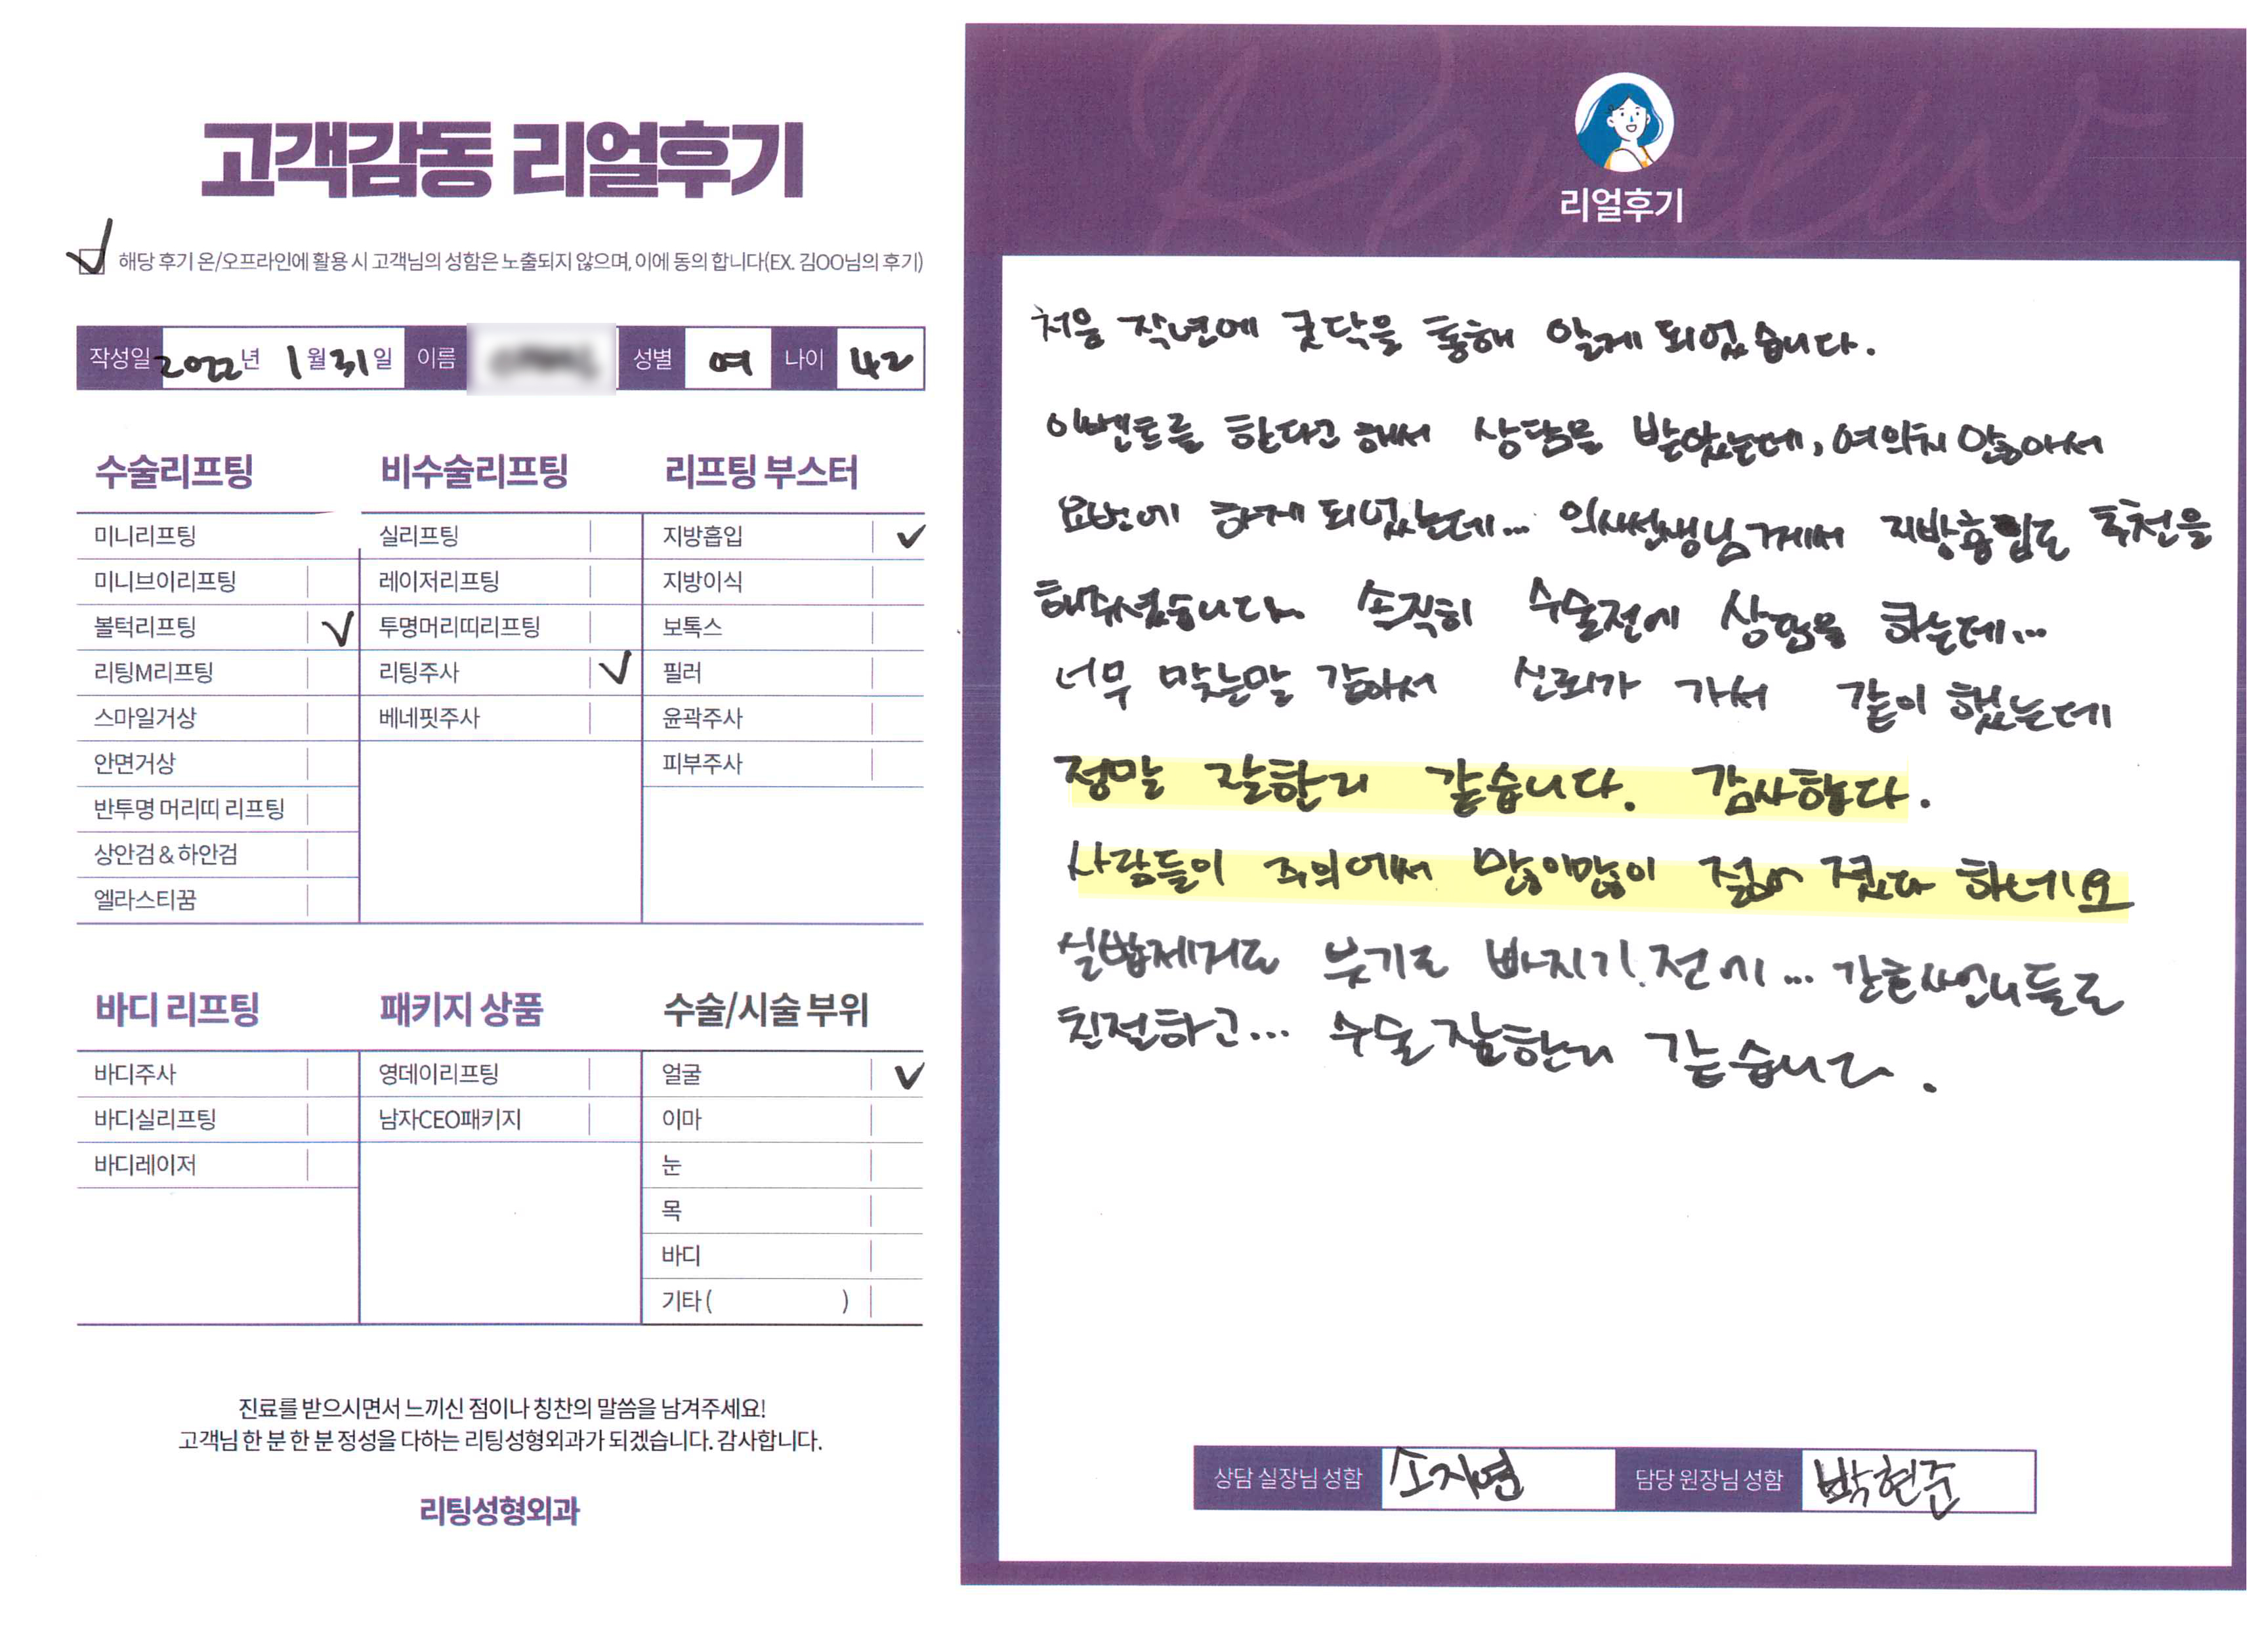 고객감동 리얼후기
해당 후기 온/오프라인에 활용 시 고객님의 성함은 노출되지 않으며, 이에 동의 합니다(EX. 김OO님의 후기)
작성일 2022년 1월 31일 이름 성별 여 나이 42
수술리프팅 비수술리프팅 리프팅 부스터
미니리프팅 실리프팅 지방흡입 ✓
미니브이리프팅 레이저리프팅 지방이식
볼턱리프팅 ✓ 투명머리띠리프팅 보톡스
리팅M리프팅 리팅주사 ✓ 필러
스마일거상 베네핏주사 윤곽주사
안면거상 피부주사
반투명 머리띠 리프팅
상안검 & 하안검
엘라스티꿈
바디 리프팅 패키지 상품 수술/시술 부위
바디주사 영데이리프팅 얼굴 ✓
바디실리프팅 남자CEO패키지 이마
바디레이저 눈
목
바디
기타 ( )
진료를 받으시면서 느끼신 점이나 칭찬의 말씀을 남겨주세요!
고객님 한 분 한 분 정성을 다하는 리팅성형외과가 되겠습니다. 감사합니다.
리팅성형외과
Review
리얼후기
처음 작년에 굿닥을 통해 알게 되었습니다.
이벤트를 한다고 해서 상담을 받았는데, 여의치 않아서
요번에 하게 되었는데... 의사선생님께서 지방흡입도 추천을
해주셨습니다. 솔직히 수술전에 상담을 하는데...
너무 맞는말 같아서 신뢰가 가서 같이 했는데
정말 잘한거 같습니다. 감사합니다.
사람들이 주위에서 많이많이 젊어 졌다 하네요
실밥제거도 붓기도 빠지기.전에... 간호사언니들도
친절하고... 수술 잘한거 같습니다.
상담 실장님 성함 소지연 담당 원장님 성함 박현준